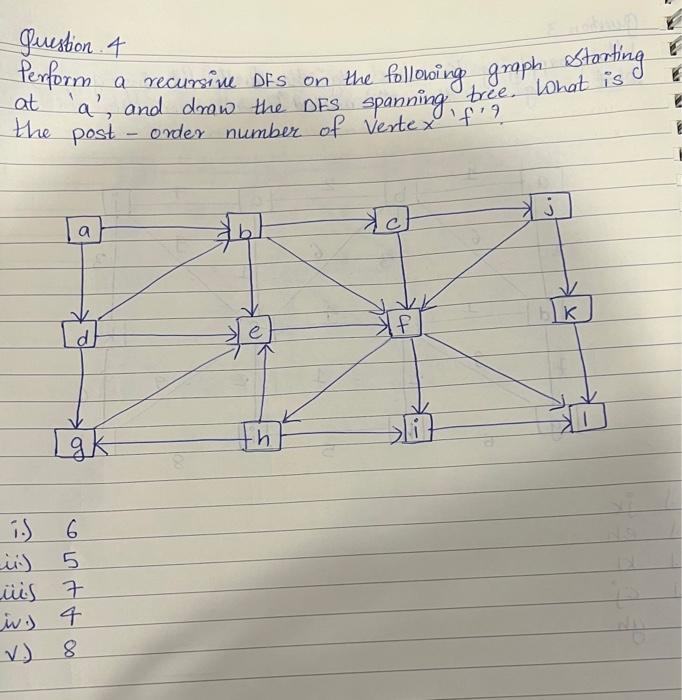 Question. 4
Perform a recursive DFS on the following graph starting
at 'a', and draw the DFS spanning tree. What is
the post-order number of Vertex 'f'?
a b c j
d e f k
g h i l
i.) 6
ii) 5
iii) 7
iv.) 4
v.) 8